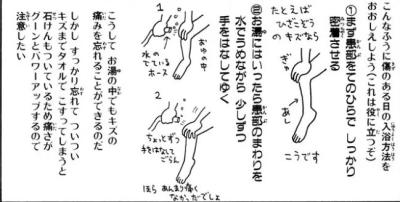 こんなふうに傷のある日の入浴方法を
おおしえしよう（これは役に立つぞ）
①まず患部をてのひらで しっかり
密着させる
たとえば
ひざこぞう
のキズなら
ぎゅ
あし
こうです
②お湯にはいったら患部のまわりを
水でうめながら 少しずつ
手をはなしてゆく
1
おゆの中
水の
でている
ホース
2
ちょっとずつ
手をはなして
ごらん
ほら あんまり痛く
なかっただでしょ
こうして お湯の中でもキズの
痛みを忘れることができるのだ
しかし すっかり忘れて ついつい
キズまでタオルで こすってしまうと
石けんもついているため痛さが
グーンとパワーアップするので
注意したい